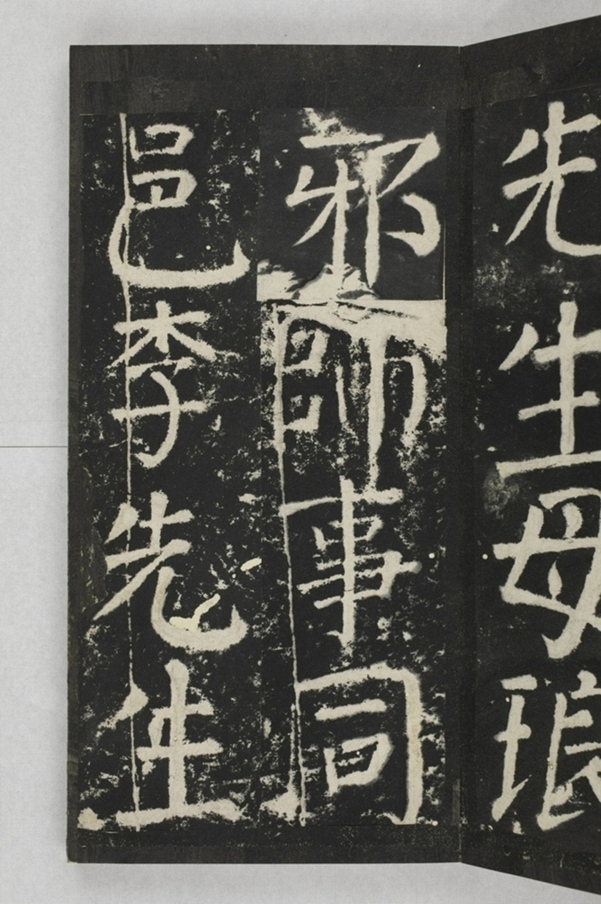 先生母琅
邪師事同
邑李先生